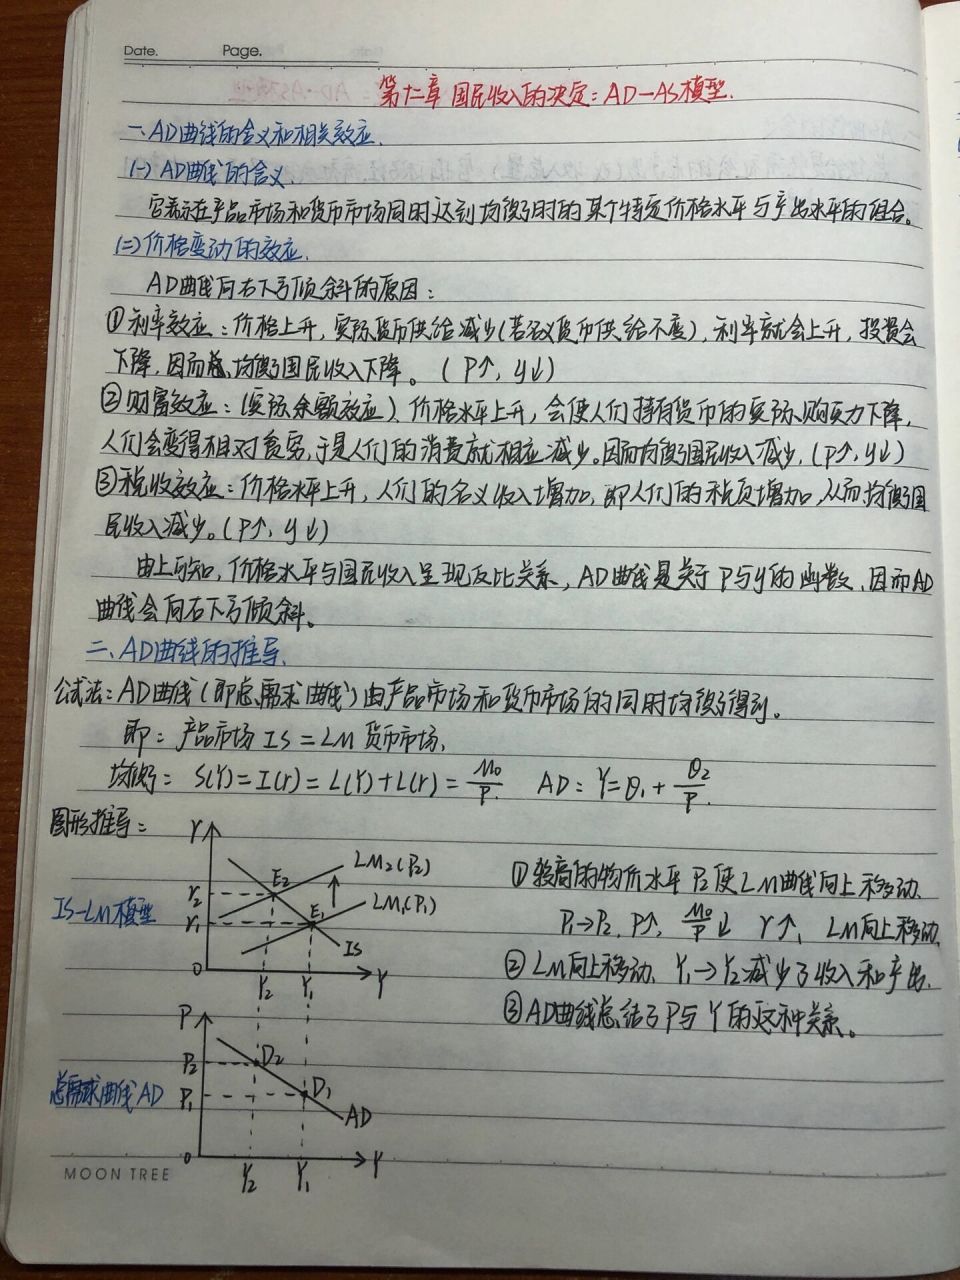 Date. Page.
第十二章 国民收入的决定：AD-AS模型.
一、AD曲线的含义和相关效应.
(一) AD曲线的含义.
它表示在产品市场和货币市场同时达到均衡时的某个特定价格水平与产出水平的组合。
(二)价格变动的效应.
AD曲线向右下方倾斜的原因：
①利率效应：价格上升，实际货币供给减少(若名义货币供给不变)，利率就会上升，投资会
下降，因而总、均衡国民收入下降。（P↑，y↓）
②财富效应：(实际余额效应)、价格水平上升，会使人们持有货币的实际购买力下降，
人们会变得相对贫穷，于是人们的消费就相应减少。因而均衡国民收入减少，(P↑，y↓)
③税收效应：价格水平上升，人们的名义收入增加，即人们的税负增加，从而均衡国
民收入减少。(P↑，y↓)
由上可知，价格水平与国民收入呈现反比关系，AD曲线是关于P与y的函数、因而AD
曲线会向右下方倾斜。
二、AD曲线的推导.
公式法：AD曲线(即总需求曲线)由产品市场和货币市场的同时均衡得到。
即：产品市场 IS = LM 货币市场.
均衡： S(Y)=I(r)=L(Y)+L(r)=M₀/P. AD：Y=θ₁+θ₂/P.
图形推导：
r
LM₂(P₂)
E₂
LM₁(P₁)
E₁
r₂
r₁
IS
IS-LM模型
0 Y₂ Y₁ Y
①较高的物价水平P₂使LM曲线向上移动.
P₁→P₂，P↑，M₀/P↓ r↑，LM向上移动.
②LM向上移动、Y₁→Y₂减少了收入和产出.
③AD曲线总结了P与Y的这种关系。
P
P₂
D₂
P₁
D₁
AD
总需求曲线AD
0 Y₂ Y₁ Y
MOON TREE